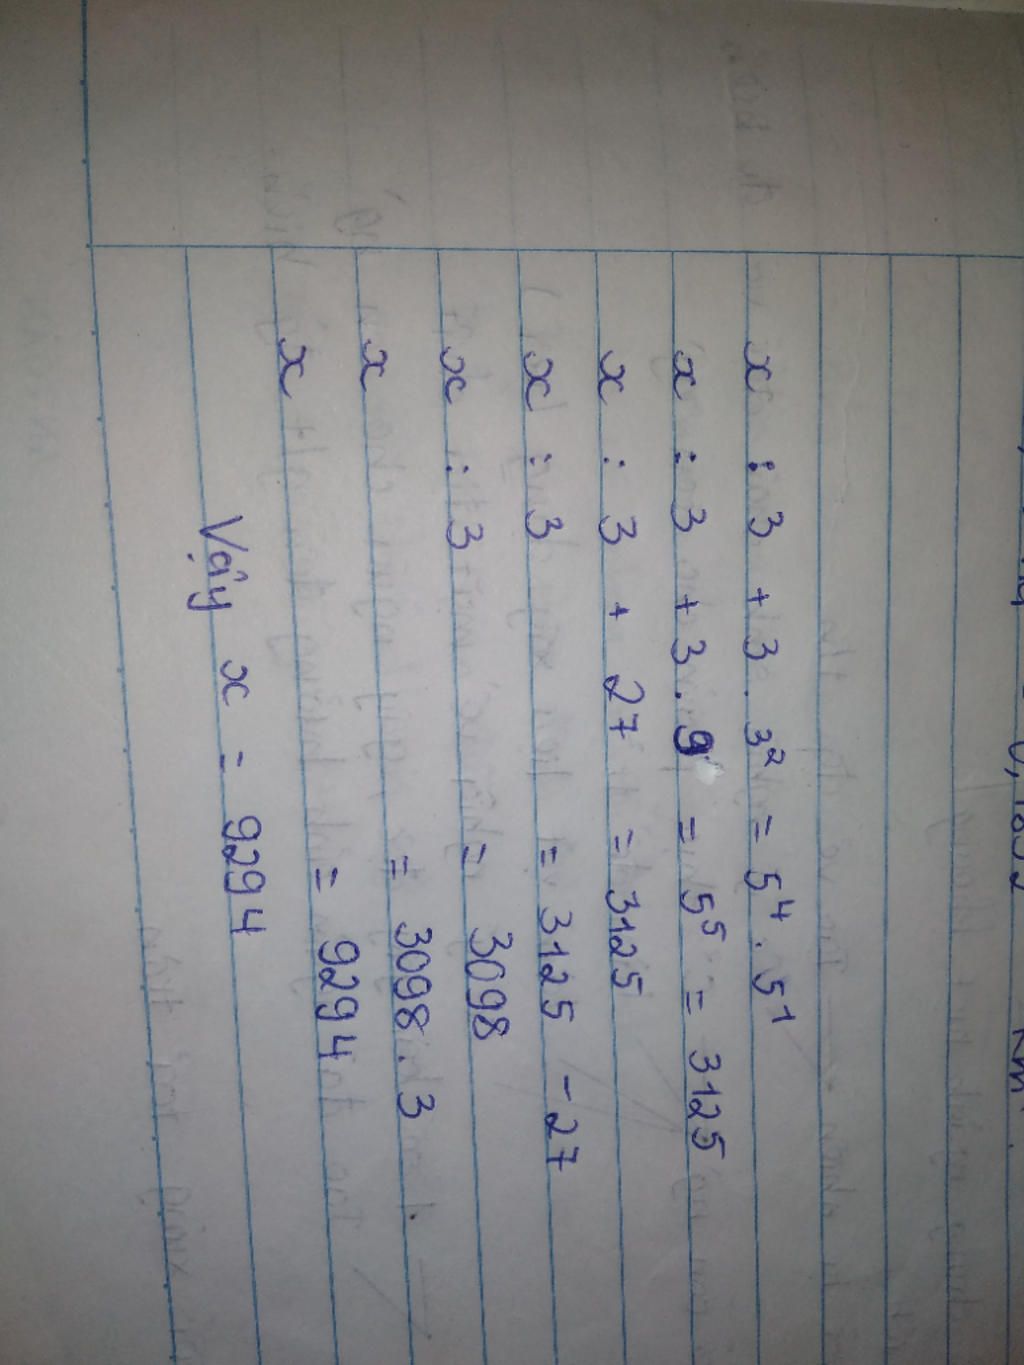 x : 3 + 3 . 3² = 5⁴ . 5¹
x : 3 + 3 . 9 = 5⁵ = 3125
x : 3 + 27 = 3125
x : 3 = 3125 - 27
x : 3 = 3098
x = 3098 . 3
x = 9294
Vậy x = 9294